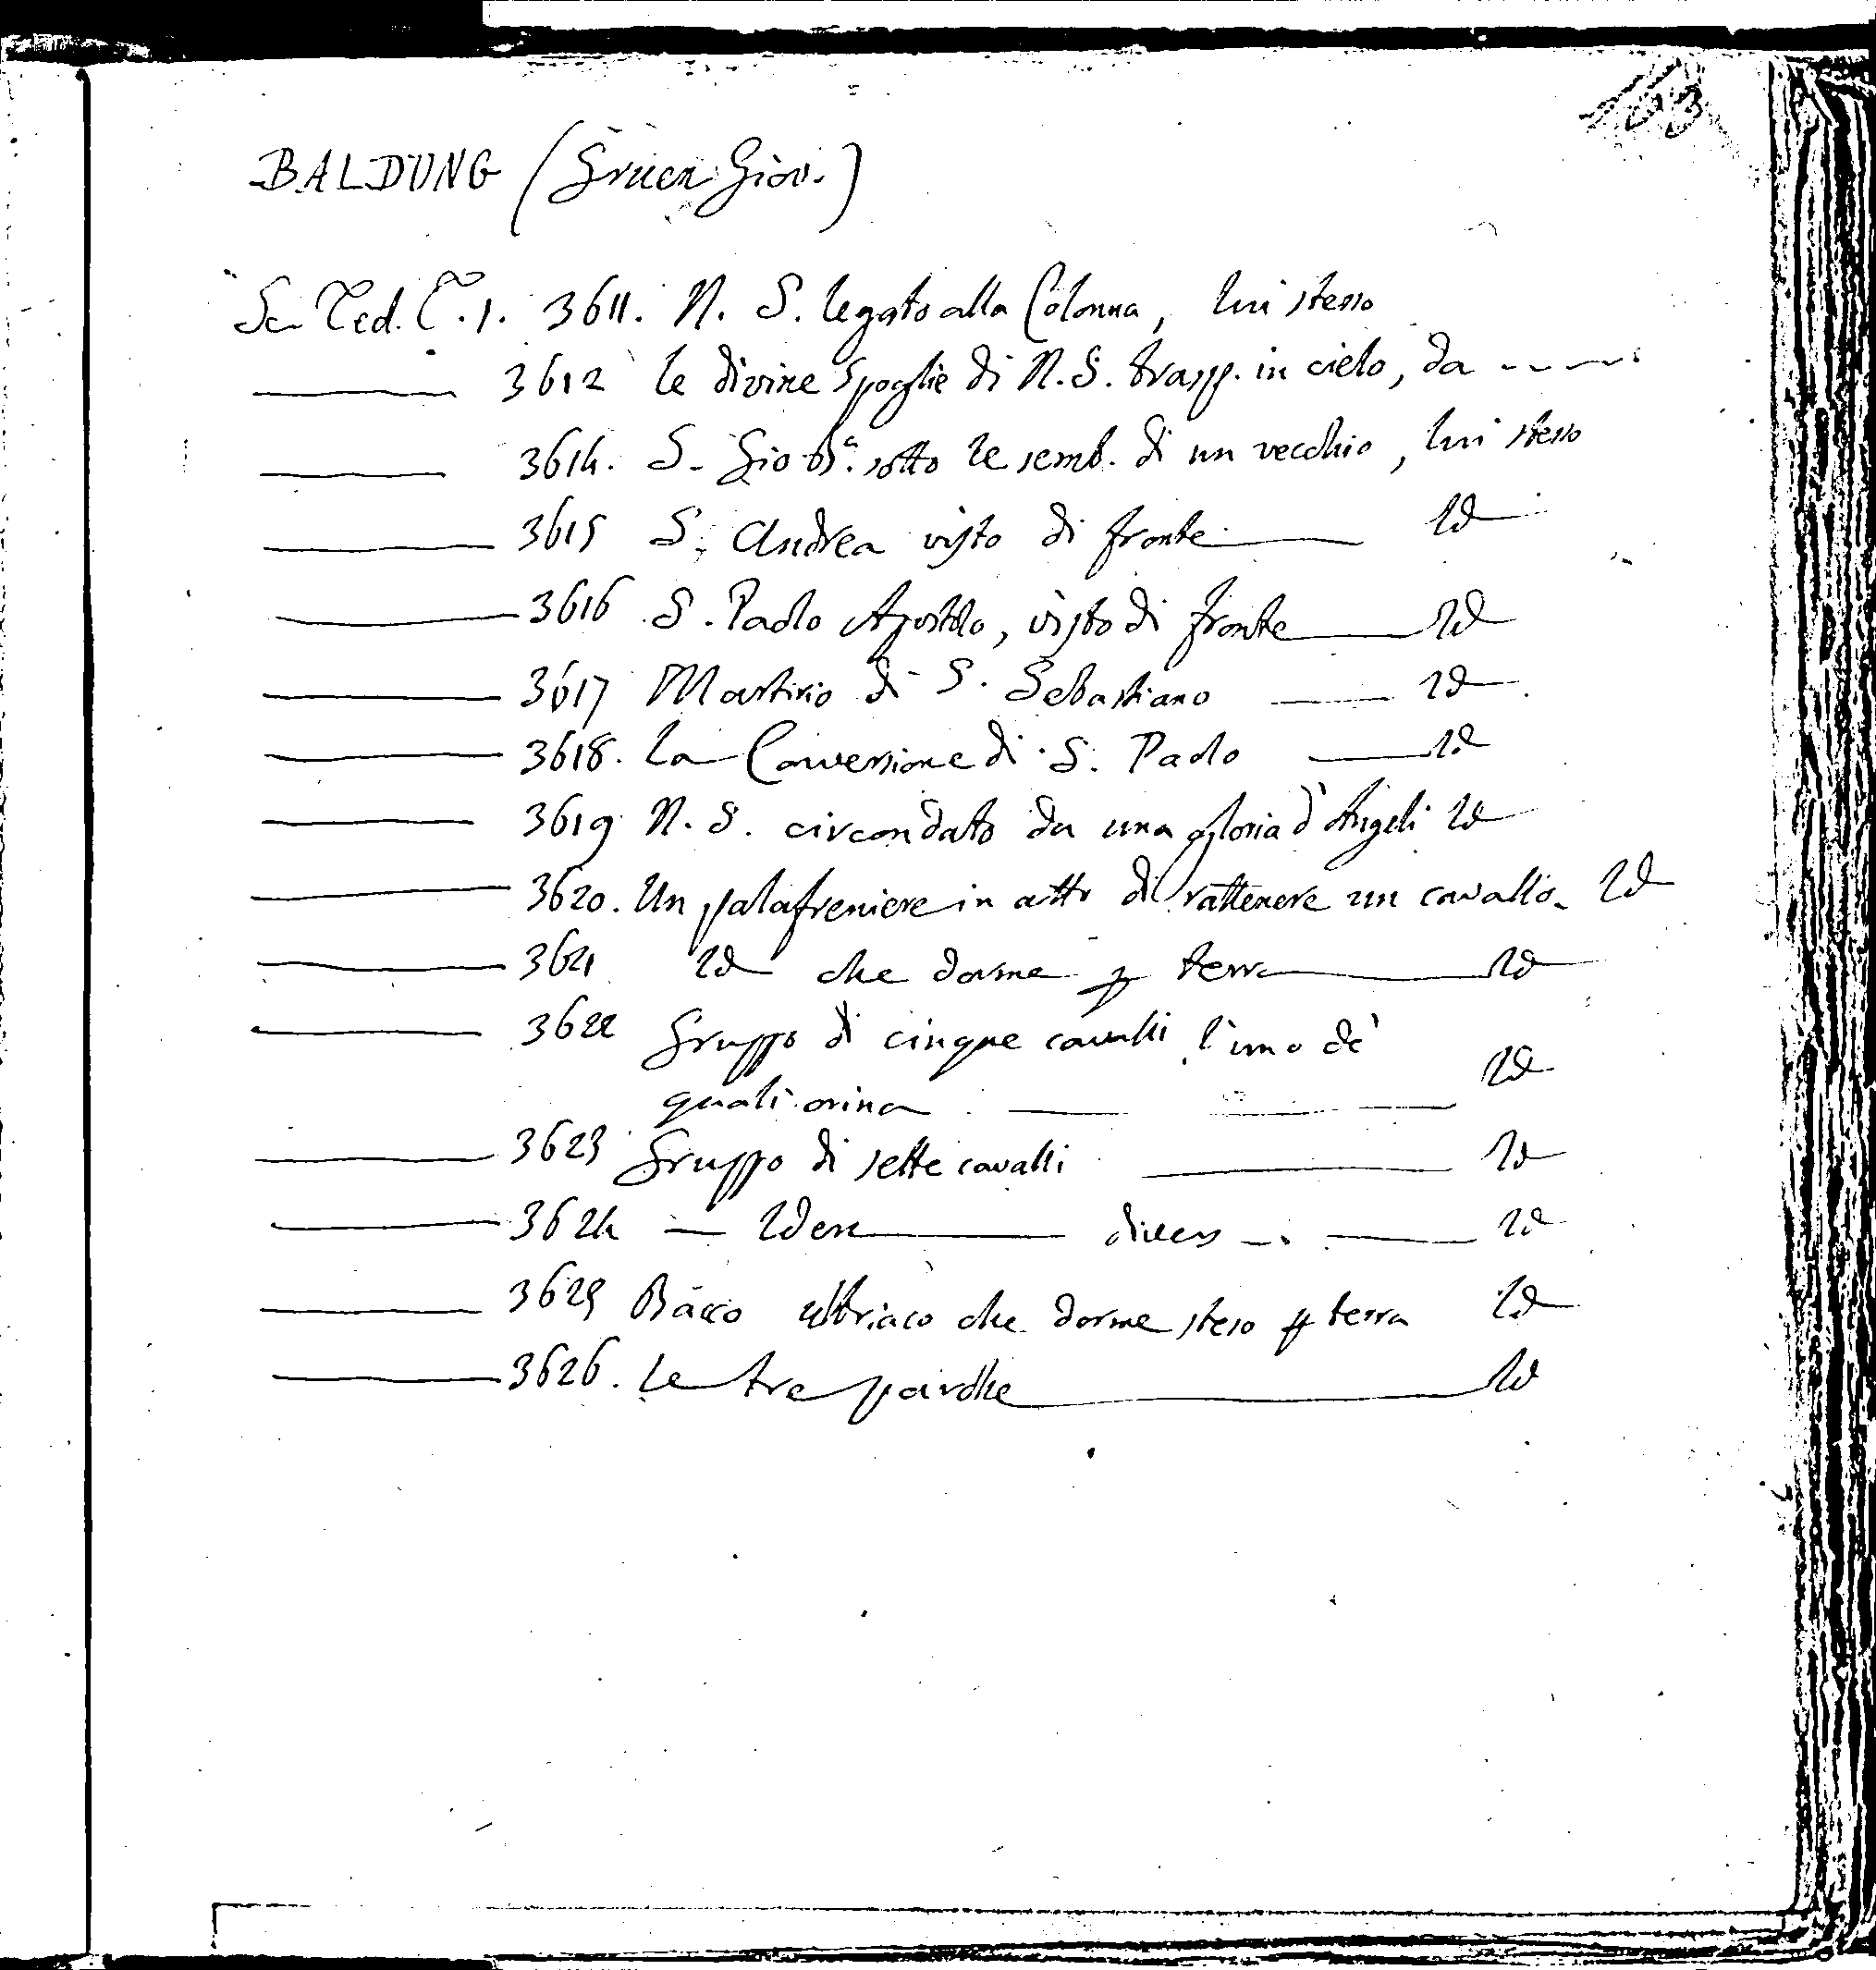 163
BALDUNG (Gruen Giov.)
Sc. Ted. T. 1. 3611. N. S. legato alla Colonna, lui stesso
3612 le divine spoglie di N. S. trasp. in cielo, da -----
3614. S. Gio Ba. sotto le semb. di un vecchio, lui stesso
3615 S. Andrea visto di fronte Id
3616 S. Paolo Apostolo, visto di fronte Id
3617 Martirio di S. Sebastiano Id
3618. La Conversione di S. Paolo Id
3619 N. S. circondato da una gloria d'Angeli Id
3620. Un palafreniere in atto di rattenere un cavallo. Id
3621 Id che dorme p terra Id
3622 Gruppo di cinque cavalli l'uno de'
quali orina Id
3623 Gruppo di sette cavalli Id
3624 — Idem divers Id
3625 Bacco ubbriaco che dorme steso p terra Id
3626. Le tre parche Id